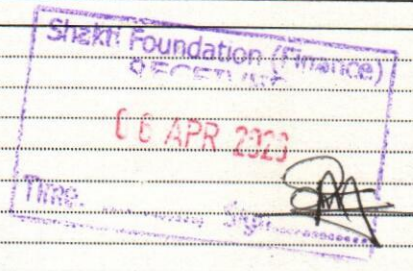 Shakti Foundation (Finance)
RECEIVED
06 APR 2023
Time. Sign